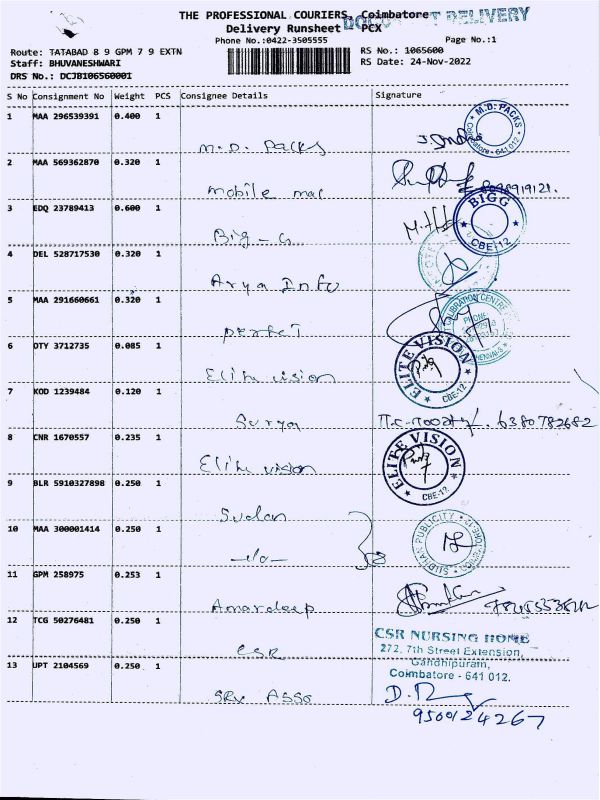 THE PROFESSIONAL COURIERS, Coimbatore
DOCUMENT DELIVERY
Delivery Runsheet PCX
Phone No.:0422-3505555 Page No.:1
Route: TATABAD 8 9 GPM 7 9 EXTN RS No.: 1065600
Staff: BHUVANESHWARI RS Date: 24-Nov-2022
DRS No.: DCJB106560001
S No Consignment No Weight PCS Consignee Details Signature
1 MAA 296539391 0.400 1
M.D. Packs
M.D. PACKS Coimbatore - 641 012.
2 MAA 569362870 0.320 1
mobile mac
8098919121.
3 EDQ 23789413 0.600 1
Big-G
BIGG CBE-12
4 DEL 528717530 0.320 1
Arya Info
5 MAA 291660661 0.320 1
perfect
CALIBRATION CENTRE PHONE CHENNAI
6 OTY 3712735 0.085 1
Elite vision
ELITE VISION CBE-12
7 KOD 1239484 0.120 1
Surya
6380782682
8 CNR 1670557 0.235 1
Elite vision
ELITE VISION CBE-12
9 BLR 5910327898 0.250 1
Sudan
10 MAA 300001414 0.250 1
-do-
SUDHAN PUBLICITY
11 GPM 258975 0.253 1
Amardeep
12 TCG 50276481 0.250 1
CSR
CSR NURSING HOME
272, 7th Street Extension,
Gandhipuram,
Coimbatore - 641 012.
13 UPT 2104569 0.250 1
SRV ASSO
9500124267